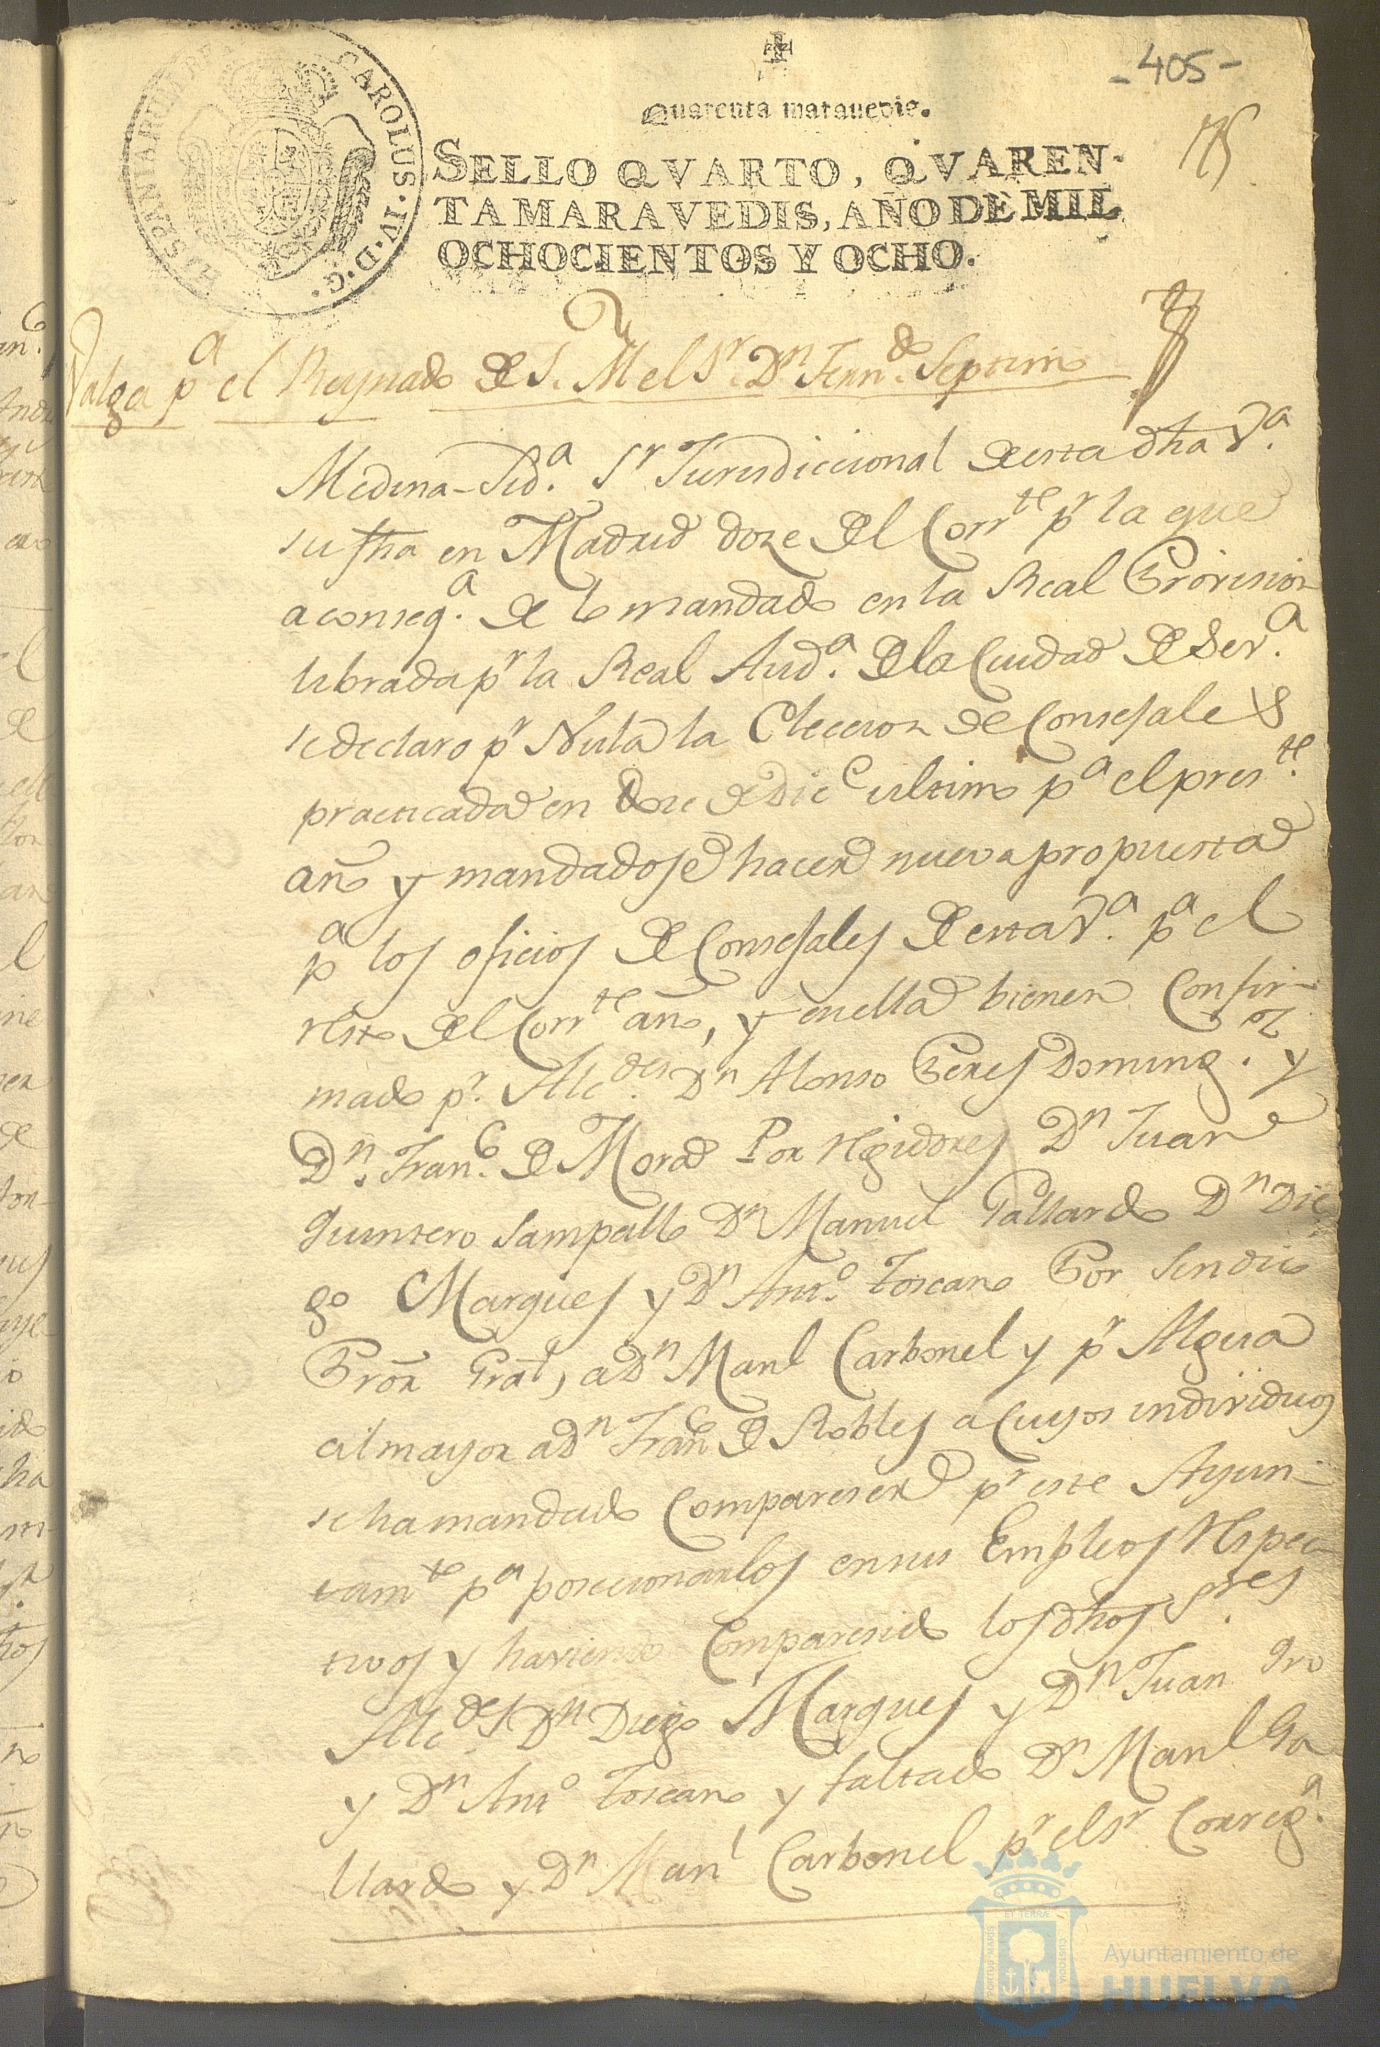 - 405 -
175
Quarenta marauedis.
HISPANIARUM REX CAROLUS·IV·D·G·
SELLO QVARTO, QVAREN-
TA MARAVEDIS, AÑO DE MIL
OCHOCIENTOS Y OCHO.
Valga pª el Reynado de S. M el Sr. Dn Ferndo. Septimo
Medina-Sidª. Sr Jurisdiccional de esta dha Vª.
su fha en Madrid doze del Corrte pr la que
a conseqª. de lo mandado en la Real Provision
librada pr la Real Audª. de la Ciudad de Sevª.
se declaro pr Nula la Eleccion de Consejales
practicada en doze de Dice ultimo pª el preste.
año y mandadose hacer nueva propuesta
pª los oficios de Consejales de esta Vª. pª el
resto del Corrte año, y en ella bienen Confir-
mado pr. Alcdes. Dn Alonso Peres Domingz. y
Dn. Franco. de Mora Por Regidores Dn Juan
Quintero Sampallo Dn Manuel Gallardo Dn Die
go Marques y Dn Anto. Toscano Por Sindico
Pror Gral, a Dn Manl Carbonel y pr Algua
cil mayor a Dn Franco de Robles a Cuyos individuos
se ha mandado Compareser pr este Ayun-
tamto pª posecionarlos en sus Empleos Respec-
tivos y haviendo Comparesido los dhos Sres
Alcdes Dn Diego Marques y Dn Juan Qro
y Dn Anto Toscano y faltado Dn Manl Ga
llardo y Dn Manl Carbonel pr el Sr Corregr.
PORTUS MARIS ET TERRAE CUSTODIA
Ayuntamiento de
HUELVA